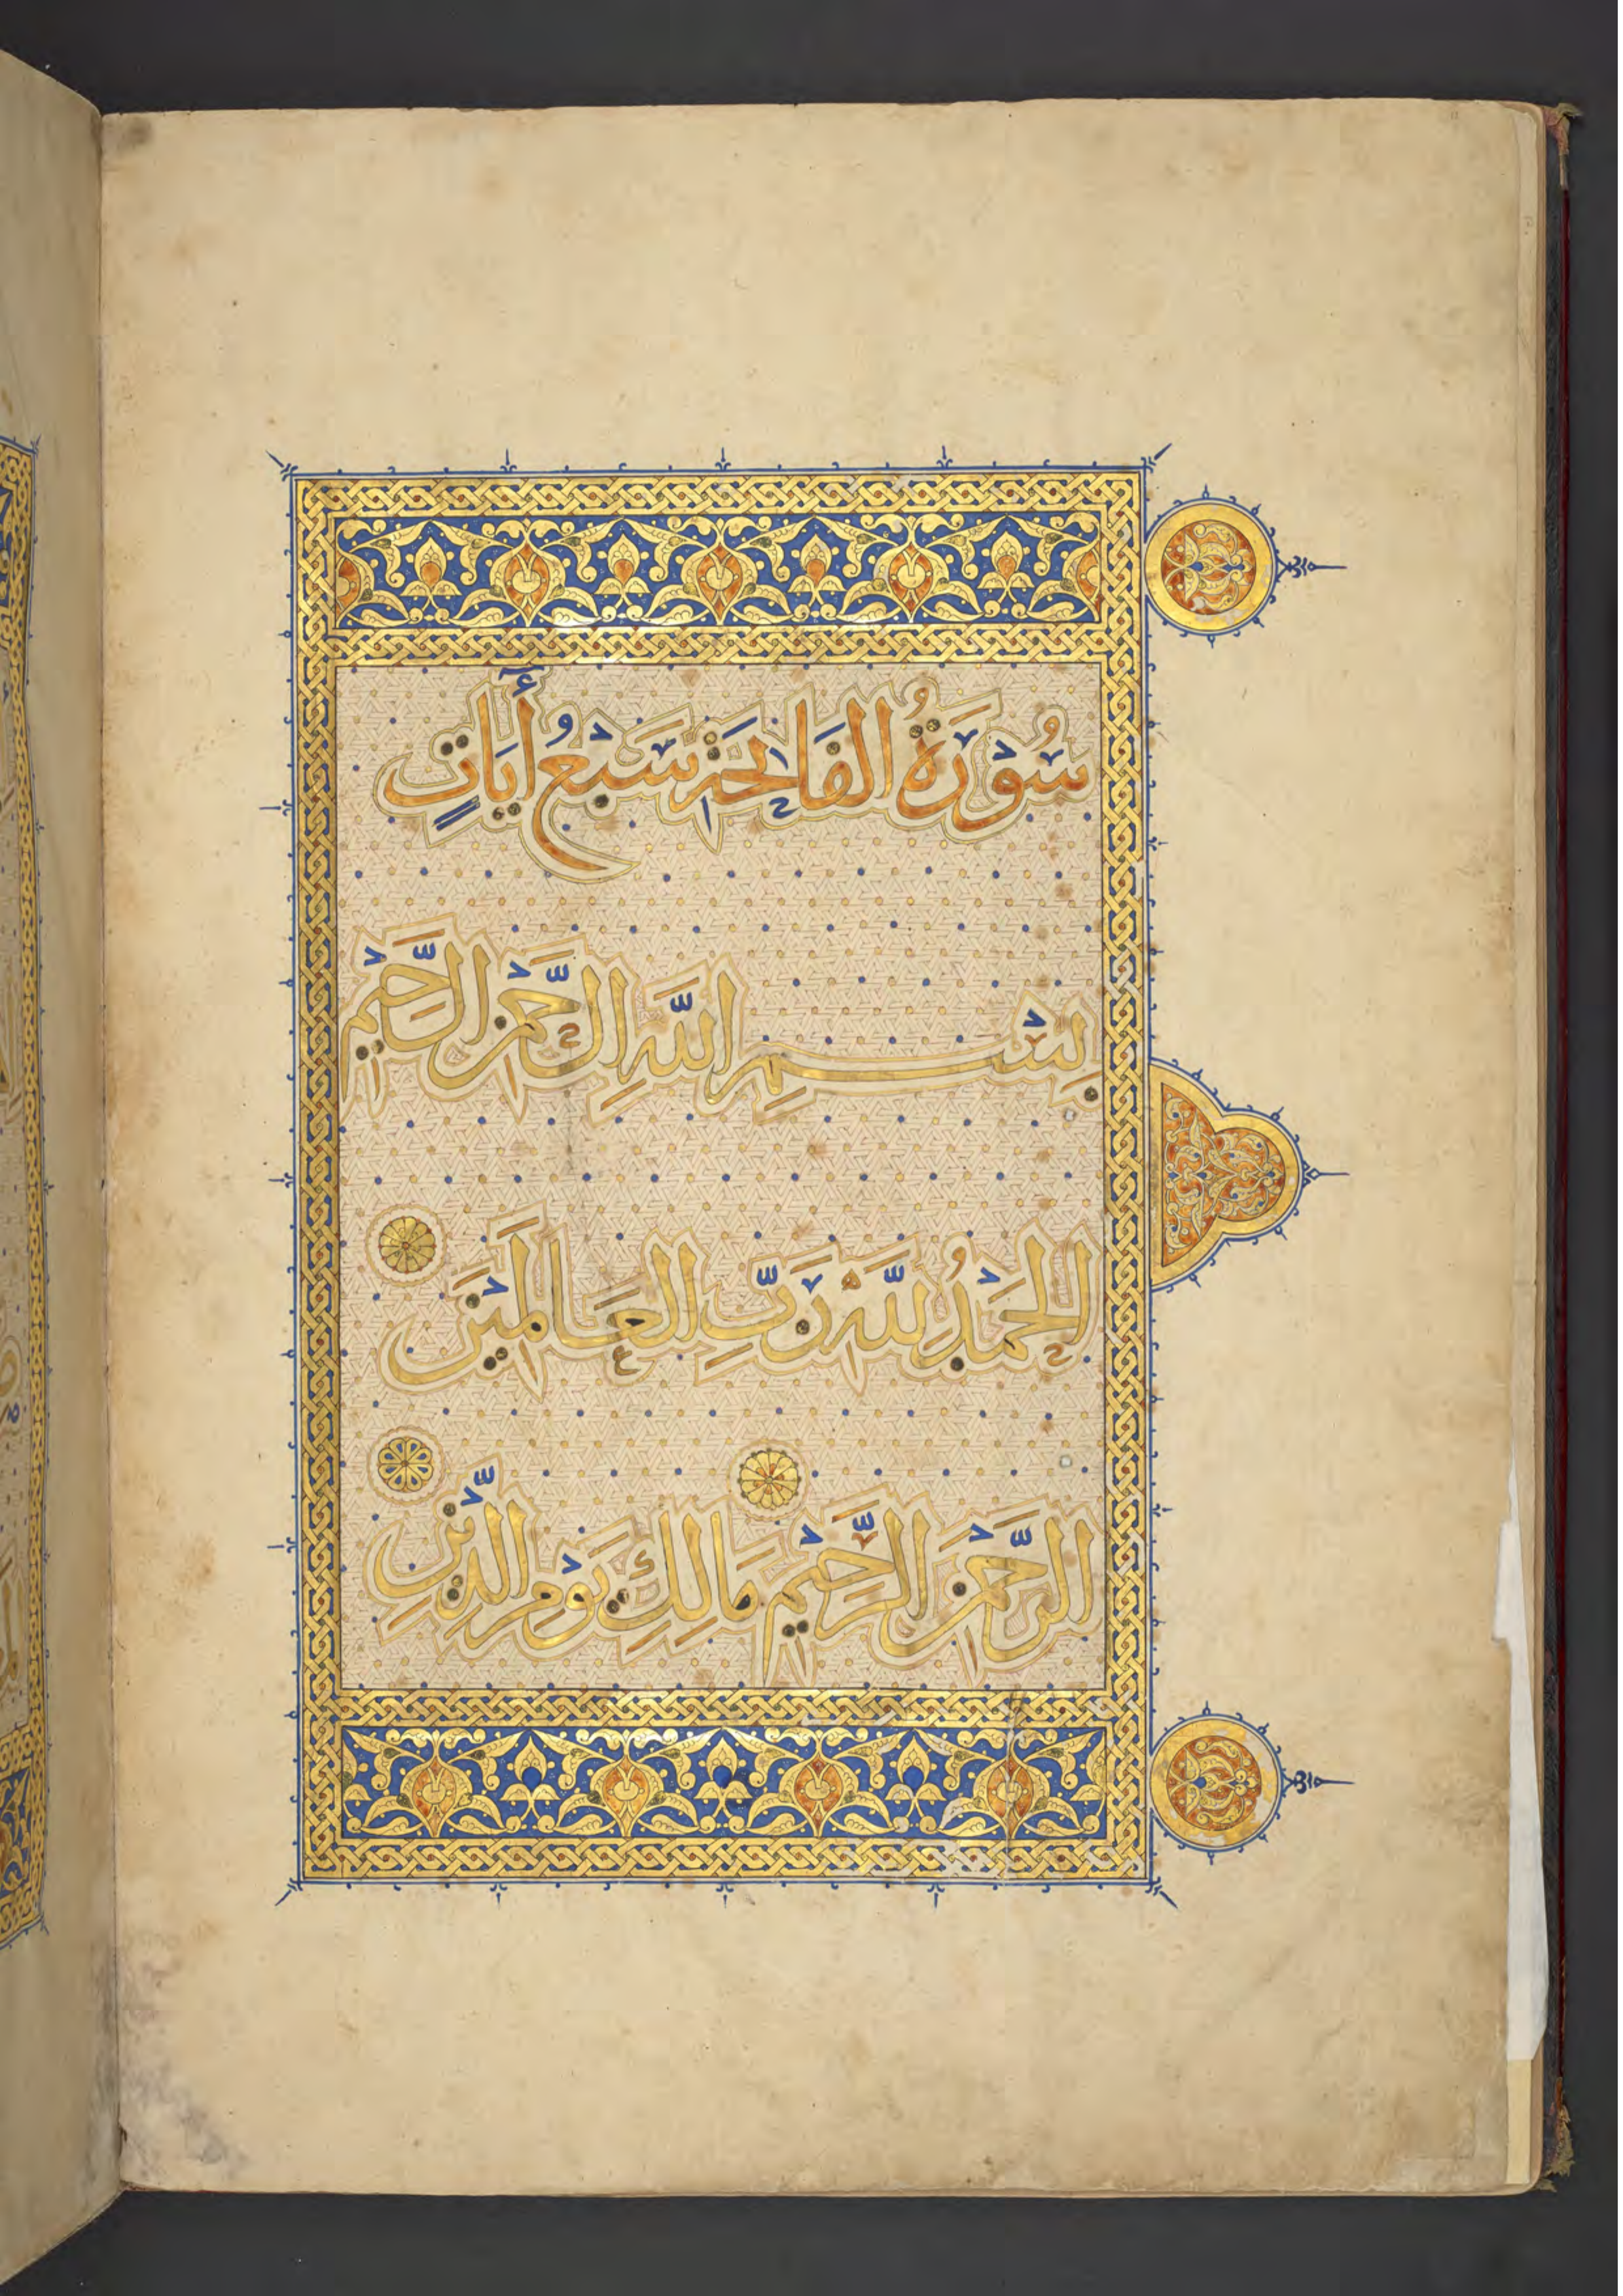 سُوْرَةُ الفَاتِحَةِ سَبْعُ أٰيَاتٍ
بِسْمِ اللَّهِ الرَّحْمَنِ الرَّحِيْمِ
الحَمْدُ لِلَّهِ رَبِّ العَالَمِيْنَ
الرَّحْمَنِ الرَّحِيْمِ مَالِكِ يَوْمِ الدِّيْنِ